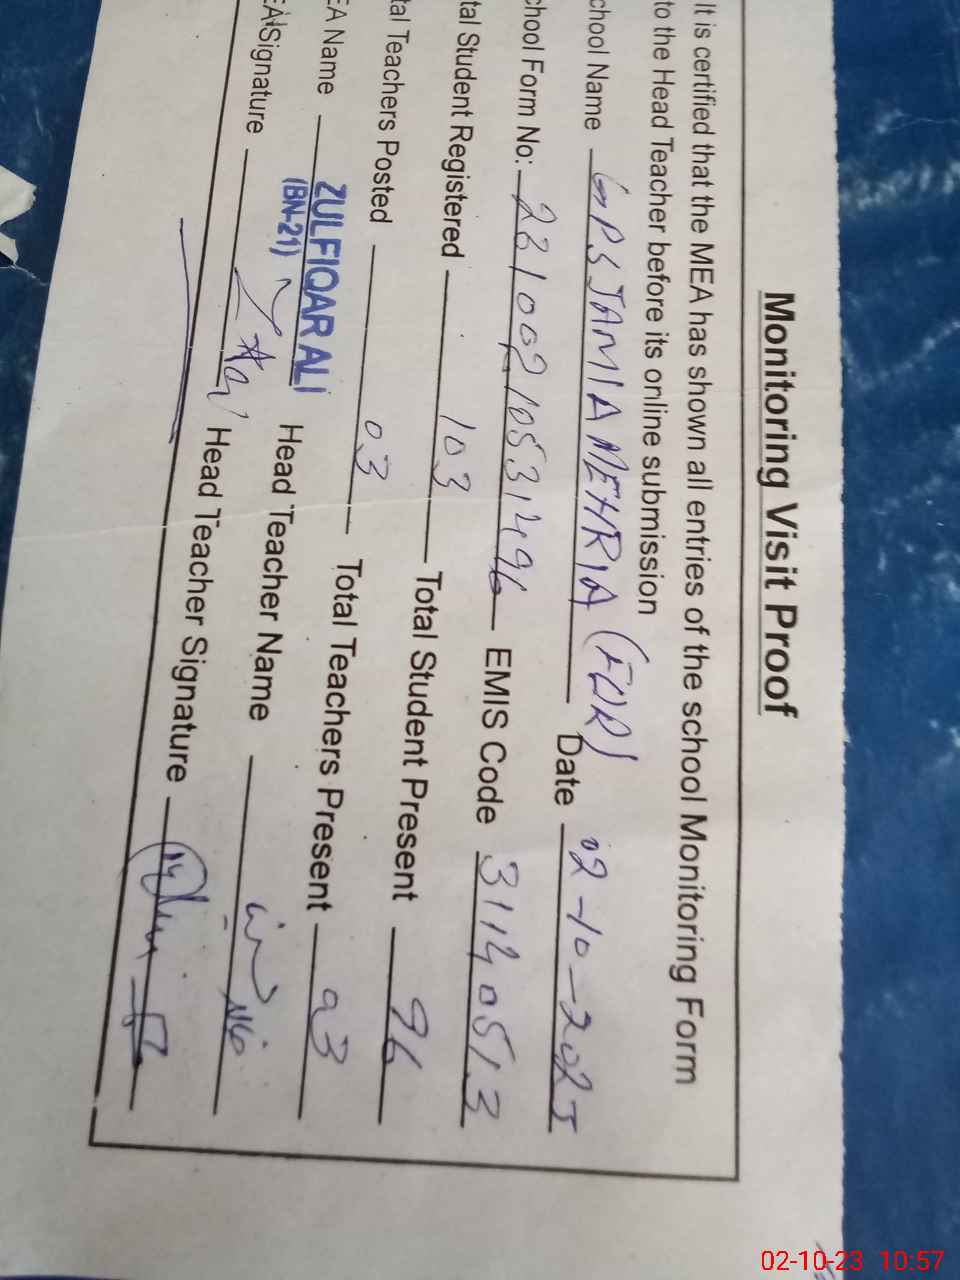 Monitoring Visit Proof
It is certified that the MEA has shown all entries of the school Monitoring Form
to the Head Teacher before its online submission
chool Name GPS JAMIA MEHRIA (FDR) Date 02-10-2025
chool Form No: EMIS Code 31140513
tal Student Registered 103 Total Student Present 96
tal Teachers Posted 03 Total Teachers Present 03
EA Name ZULFIQAR ALI Head Teacher Name
(BN-21)
EA Signature Head Teacher Signature
02-10-23 10:57